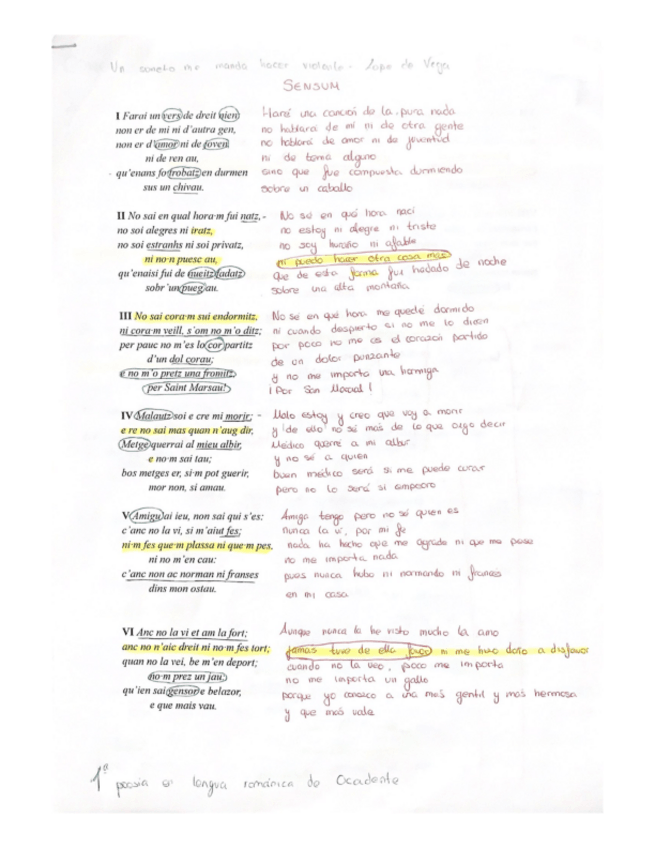 Un soneto me manda hacer violante - Lope de Vega
SENSUM
I Farai un vers de dreit nien Haré una canción de la pura nada
non er de mi ni d'autra gen, no hablará de mí ni de otra gente
non er d'amor ni de joven no hablará de amor ni de juventud
ni de ren au, ni de tema alguno
qu'enans fo trobatz en durmen sino que fue compuesta durmiendo
sus un chivau. sobre un caballo
II No sai en qual hora·m fui natz, - No sé en qué hora nací
no soi alegres ni iratz, no estoy ni alegre ni triste
no soi estranhs ni soi privatz, no soy huraño ni afable
ni no·n puesc au, ni puedo hacer otra cosa más
qu'enaisi fui de nueitz fadatz que de esta forma fui hadado de noche
sobr'un pueg au. sobre una alta montaña
III No sai cora·m sui endormitz, No sé en qué hora me quedé dormido
ni cora·m veill, s'om no m'o ditz; ni cuando despierto si no me lo dicen
per pauc no m'es lo cor partitz por poco no me es el corazón partido
d'un dol corau; de un dolor punzante
e no m'o pretz una fromitz, y no me importa una hormiga
per Saint Marsau! ¡Por San Marcial!
IV Malautz soi e cre mi morir; - Malo estoy y creo que voy a morir
e re no sai mas quan n'aug dir, y de ello no sé más de lo que oigo decir
Metge querrai al mieu albir, Médico querré a mi albur
e no·m sai tau; y no sé a quien
bos metges er, si·m pot guerir, buen médico será si me puede curar
mor non, si amau. pero no lo será si empeoro
V Amigu ai ieu, non sai qui s'es: Amiga tengo pero no sé quien es
c'anc no la vi, si m'aiut fes; nunca la vi, por mi fe
ni·m fes que·m plassa ni que·m pes, nada ha hecho que me agrade ni que me pese
ni no m'en cau: no me importa nada
c'anc non ac norman ni franses pues nunca hubo ni normando ni francés
dins mon ostau. en mi casa
VI Anc no la vi et am la fort; Aunque nunca la he visto mucho la amo
anc no n'aic dreit ni no·m fes tort; Jamás tuve de ella favor ni me hizo daño a disfavor
quan no la vei, be m'en deport; cuando no la veo, poco me importa
no·m prez un jau: no me importa un gallo
qu'ien sai gensor e belazor, porque yo conozco a una más gentil y más hermosa
e que mais vau. y que más vale
1ª poesía en lengua románica de Occidente